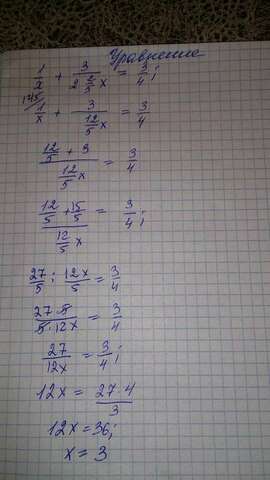 Уравнение
1/x + 3/(2 2/5 x) = 3/4;
12/5
1/x + 3/(12/5 x) = 3/4
(12/5 + 3)/(12/5 x) = 3/4
(12/5 + 15/5)/(12/5 x) = 3/4;
27/5 : 12x/5 = 3/4
27·5/5·12x = 3/4
27/12x = 3/4;
12x = 27·4/3
12x = 36;
x = 3